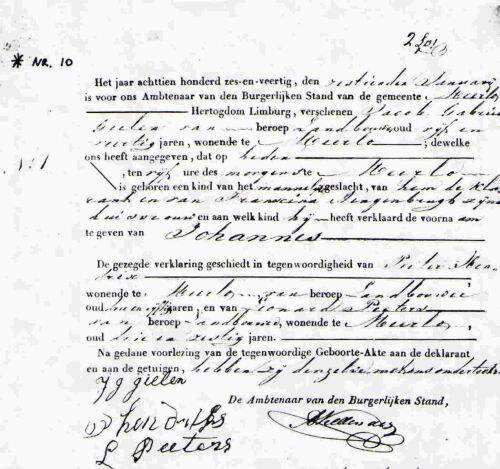 * NR. 10
Het jaar achttien honderd zes-en-veertig, den zestienden Januarij
is voor ons Ambtenaar van den Burgerlijken Stand van de gemeente Meerlo
Hertogdom Limburg, verschenen Jacob Gabriel
Gielen van beroep Landbouwer, oud vijf en
veertig jaren, wonende te Meerlo; dewelke
ons heeft aangegeven, dat op heden
, ten vijf ure des morgens te Meerlo
is geboren een kind van het mannelijk geslacht, van hem de Kla
rant en van Francina zijne
huisvrouw en aan welk kind hij heeft verklaard de voorna am
te geven van Johannes
De gezegde verklaring geschiedt in tegenwoordigheid van Peter Hen
drix
wonende te Meerlo van beroep Landbouwer
oud jaren; en van Leonard Peeters
van beroep Landbouwer, wonende te Meerlo,
oud drie en zestig jaren.
Na gedane voorlezing van de tegenwoordige Geboorte-Akte aan de deklarant
en aan de getuigen, hebben zij dezelve nevens ons onderteekend
J g gielen
De Ambtenaar van den Burgerlijken Stand,
P hendriks
L Peeters